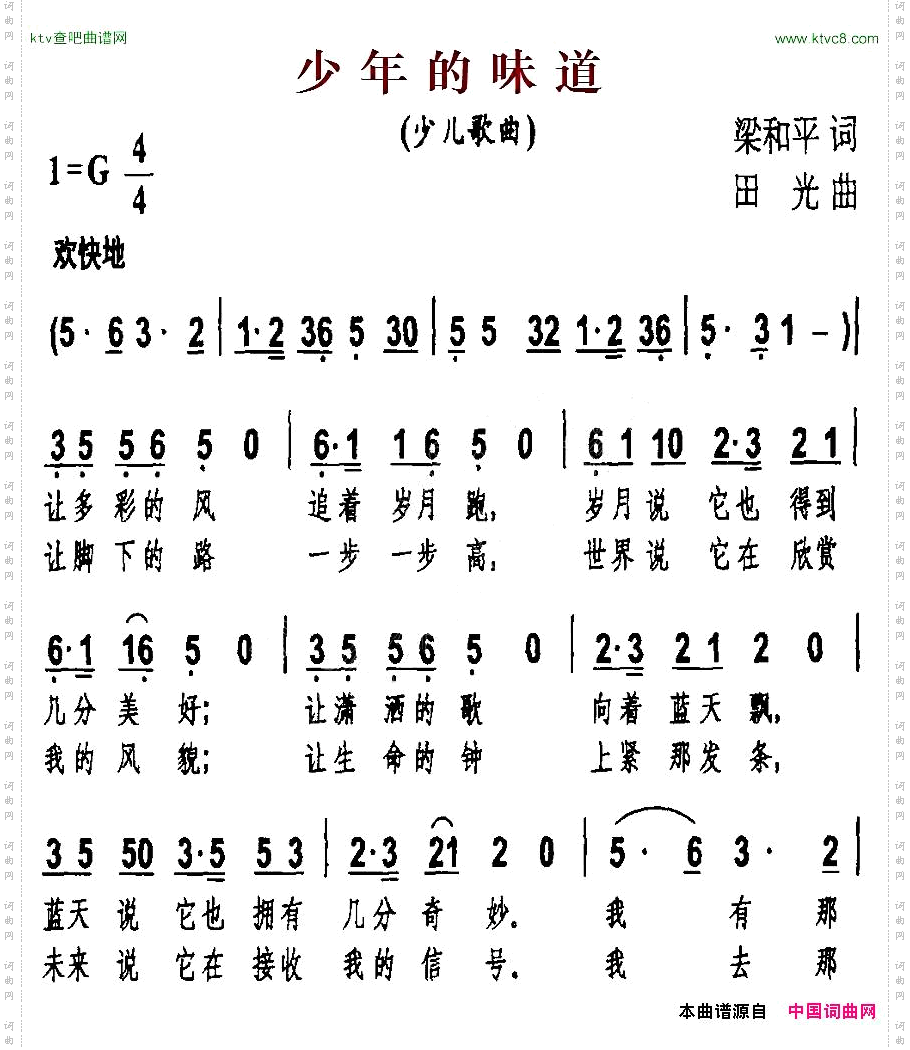 ktv查吧曲谱网
www.ktvc8.com
少年的味道
(少儿歌曲)
梁和平 词
1=G 4/4
田 光 曲
欢快地
(5· 6 3· 2 | 1·2 36 5 30 | 5 5 32 1·2 36 | 5· 3 1 – )|
3 5 5 6 5 0 | 6·1 1 6 5 0 | 6 1 10 2·3 2 1 |
让多 彩的 风 追着 岁月 跑, 岁月 说 它也 得到
让脚 下的 路 一步 一步 高, 世界 说 它在 欣赏
6·1 16 5 0 | 3 5 5 6 5 0 | 2·3 2 1 2 0 |
几分 美 好; 让潇 洒的 歌 向着 蓝天 飘,
我的 风 貌; 让生 命的 钟 上紧 那发 条,
3 5 50 3·5 5 3 | 2·3 21 2 0 | 5· 6 3· 2 |
蓝天 说 它也 拥有 几分 奇 妙. 我 有 那
未来 说 它在 接收 我的 信 号. 我 去 那
本曲谱源自 中国词曲网